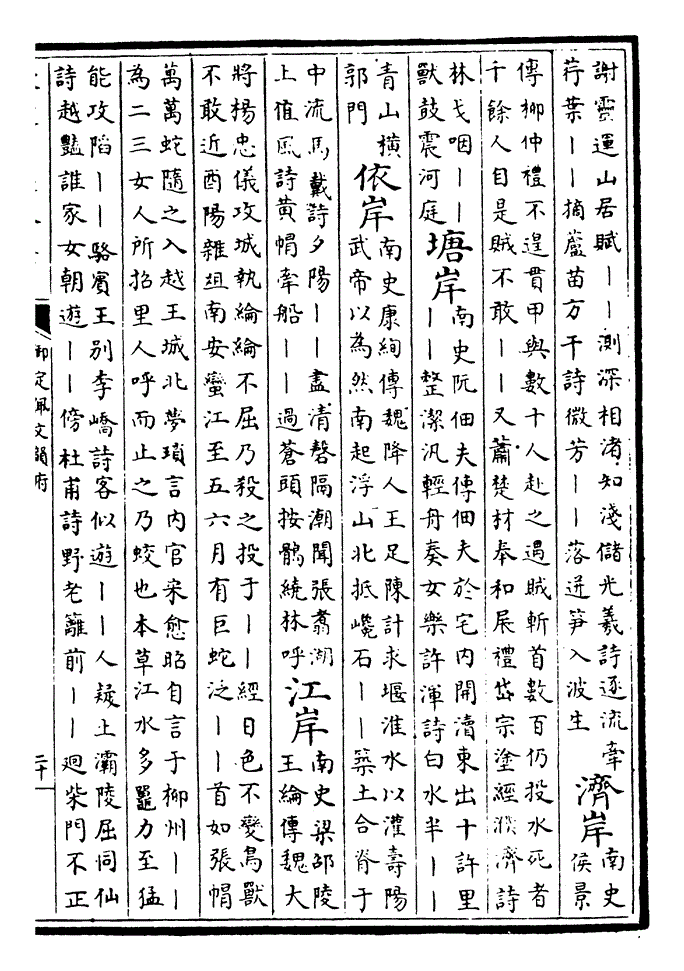 謝靈運山居賦丨丨測深相渚知淺儲光羲詩逐流牽
荇葉丨丨摘蘆苗方干詩微芳丨丨落迸笋入波生
濟岸
南史
侯景
傳柳仲禮不遑貫甲與數十人赴之遇賊斬首數百仍投水死者
千餘人自是賊不敢丨丨又蕭楚材奉和展禮岱宗塗經濮濟詩
林戈咽丨丨
獸鼓震河庭
塘岸
南史阮佃夫傳佃夫於宅内開瀆東出十許里
丨丨整潔汎輕舟奏女樂許渾詩白水半丨丨
青山橫
郭門
依岸
南史康絢傳魏降人王足陳計求堰淮水以灌壽陽
武帝以為然南起浮山北抵巉石丨丨築土合脊于
中流馬戴詩夕陽丨丨盡清磬隔潮聞張翥湖
上值風詩黄帽牽船丨丨過蒼頭按鶻繞林呼
江岸
南史梁邵陵
王綸傳魏大
將楊忠儀攻城執綸綸不屈乃殺之投于丨丨經日色不變鳥獸
不敢近酉陽雜俎南安蠻江至五六月有巨蛇泛丨丨首如張帽
萬萬蛇隨之入越王城北夢瑣言内官宋愈昭自言于柳州丨丨
為二三女人所招里人呼而止之乃蛟也本草江水多鼉力至猛
能攻陷丨丨駱賓王別李嶠詩客似遊丨丨人疑上灞陵屈同仙
詩越豔誰家女朝遊丨丨傍杜甫詩野老籬前丨丨迴柴門不正
御定佩文韻府
二十